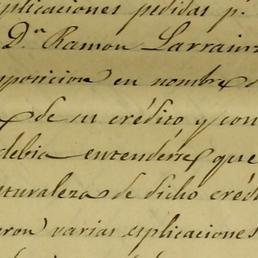 plicaciones pedidas p.
D.n Ramon Larrain
posicion en nombre
de su crédito y con
debia entenderse que
turaleza de dicho créd
ron varias esplicaciones